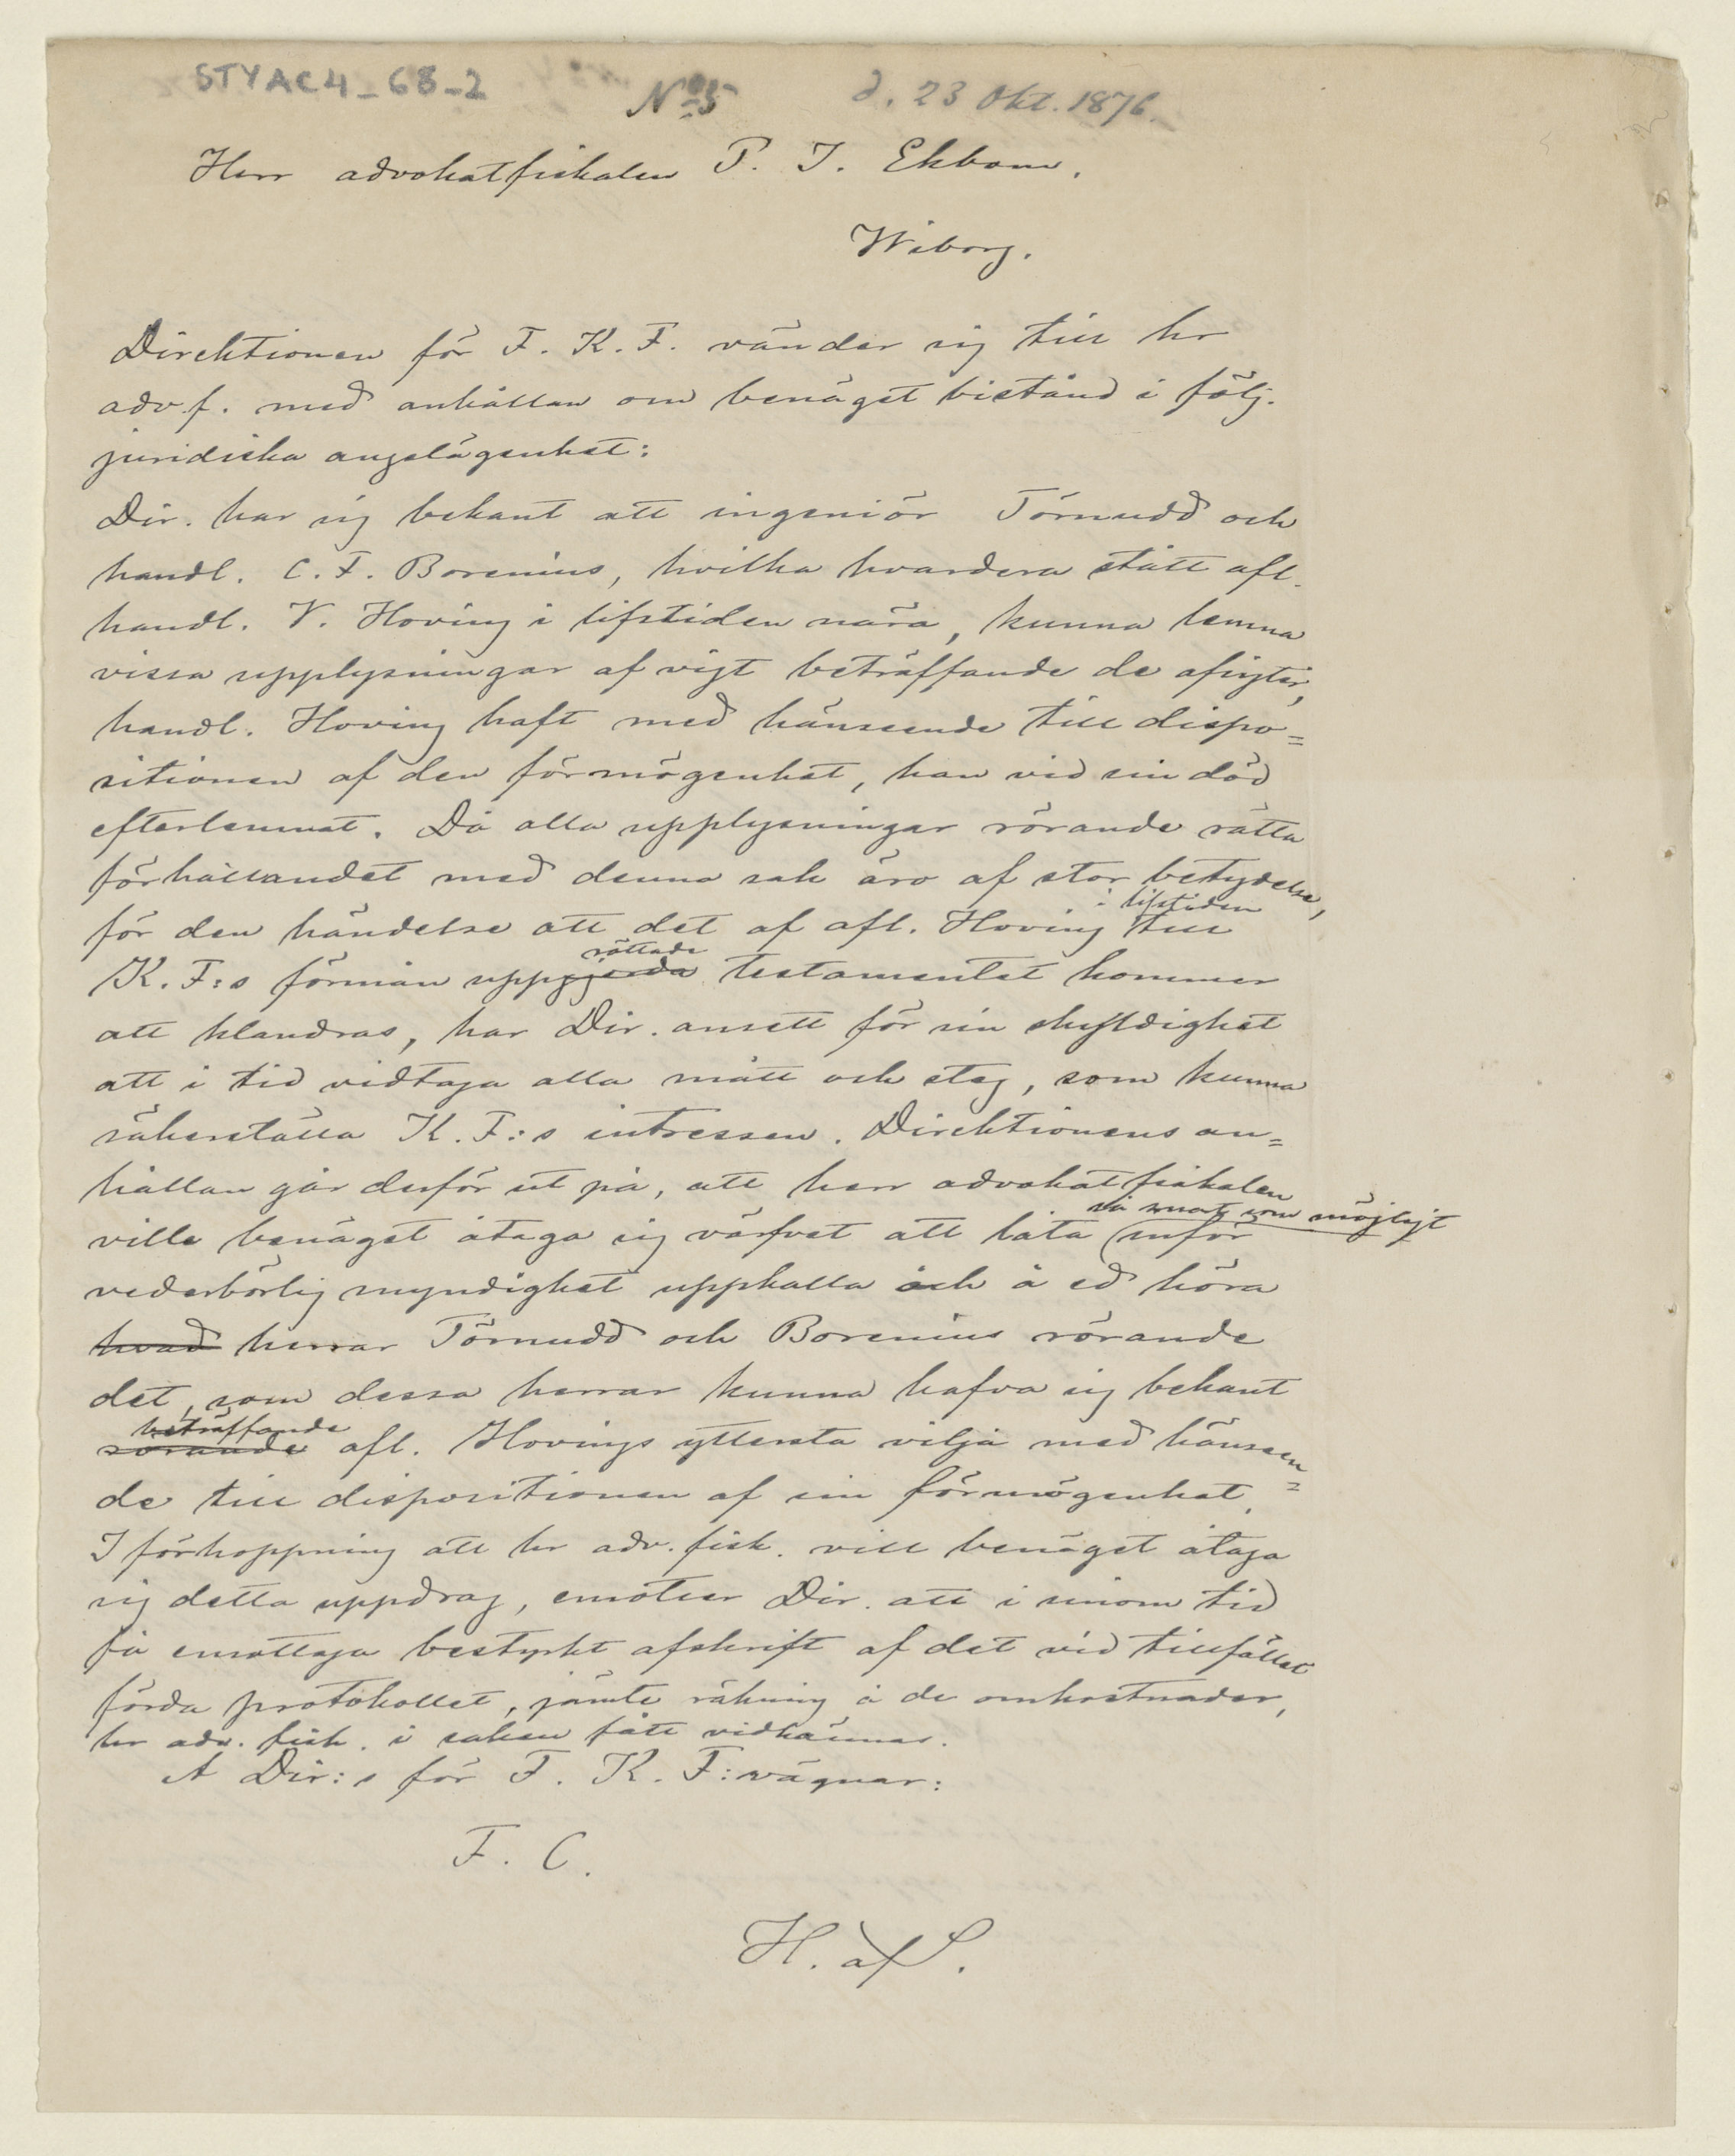 STYAC4_68_2
No 5
d. 23 Okt. 1876.
Herr advokatfiskalen P. I. Ekbom.
Wiborg.
Direktionen för F. K. F. vänder sig till hr
adv.f. med anhållan om benäget bistånd i följ.
juridiska angelägenhet:
Dir. har sig bekant att ingeniör Törnudd och
handl. C. F. Borenius, hvilka hvardera stått afl.
handl. V. Hoving i lifstiden nära, kunna lemna
vissa upplysningar af vigt beträffande de afsigter,
handl. Hoving haft med hänseende till dispo=
sitionen af den förmögenhet, han vid sin död
efterlemnat. Då alla upplysningar rörande rätta
förhållandet med denna sak äro af stor betydelse,
i lifstiden
för den händelse att det af afl. Hoving till
rättade
K. F:s förmån uppgjorda testamentet kommer
att klandras, har Dir. ansett för sin skyldighet
att i tid vidtaga alla mått och steg, som kunna
säkerställa K. F:s intressen. Direktionens an=
hållan går derför ut på, att herr advokatfiskalen
så snart som möjligt
ville benäget åtaga sig värfvet att låta inför
vederbörlig myndighet uppkalla och å ed höra
hvad herrar Törnudd och Borenius rörande
det, som dessa herrar kunna hafva sig bekant
beträffande
rörande afl. Hovings yttersta vilja med hänseen=
de till dispositionen af sin förmögenhet.
I förhoppning att hr adv. fisk. vill benäget åtaga
sig detta uppdrag, emotser Dir. att i sinom tid
få emottaga bestyrkt afskrift af det vid tillfället
förda protokollet, jämte räkning å de omkostnader,
hr adv. fisk. i saken fått vidkännas.
Å Dir:s för F. K. F: vägnar:
F. C.
H. af S.